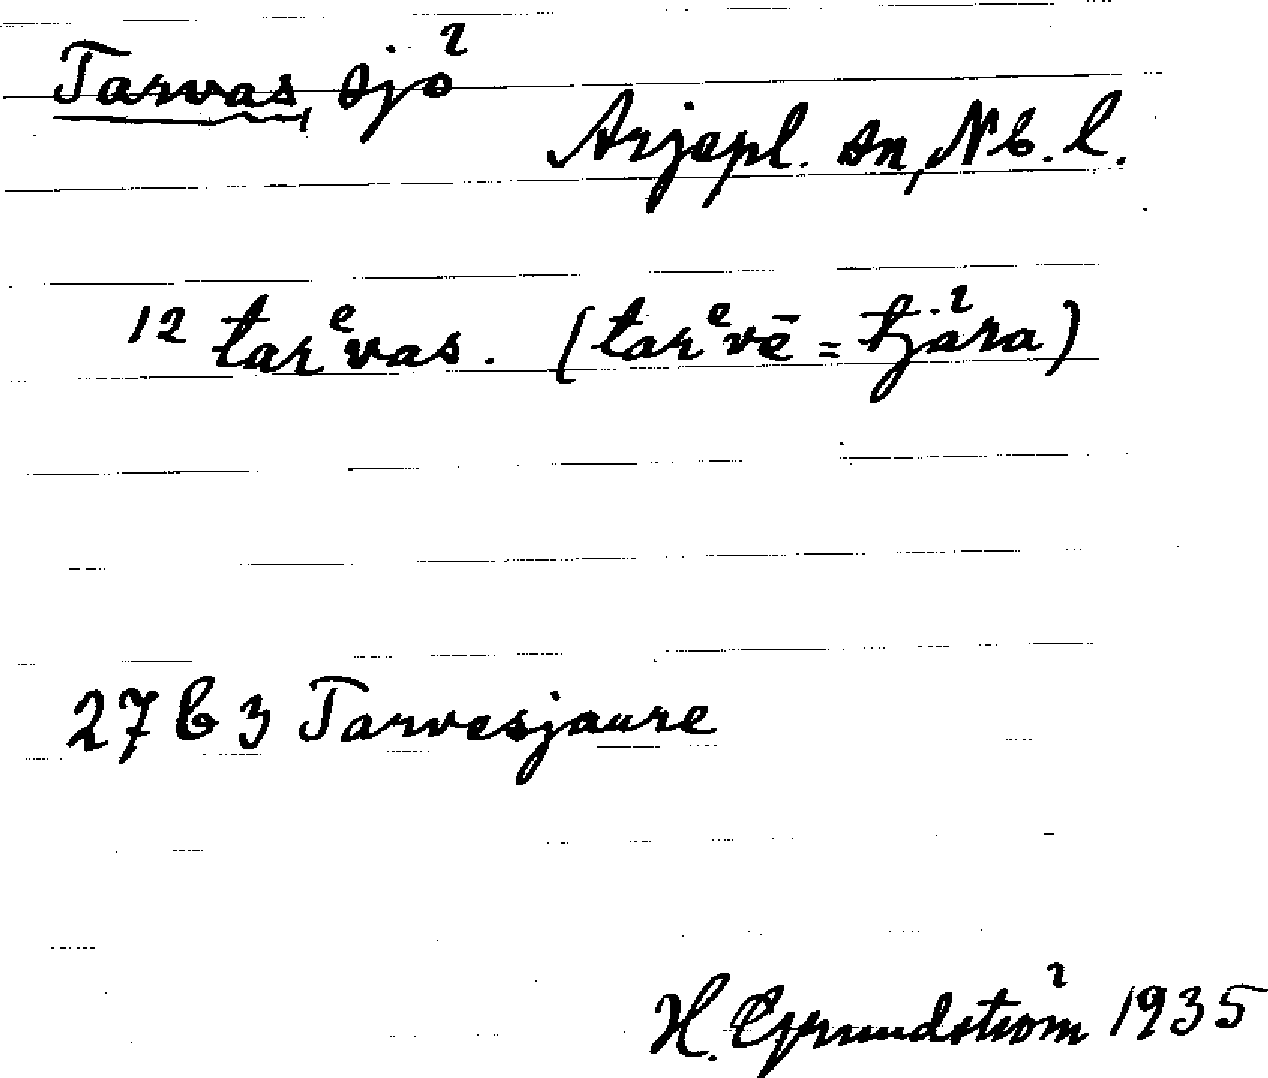 Tarvas, sjö
Arjepl. sn, Nb. l.
12 tarᵉvas. (tarᵉvē = tjära)
27 b 3 Tarvesjaure
H. Grundström 1935